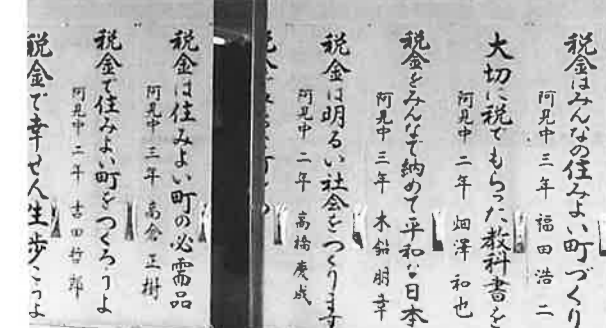 税金はみんなの住みよい町づくり
阿見中 三年 福田浩二
大切に税でもらった教科書を
阿見中 二年 畑澤和也
税金をみんなで納めて平和な日本
阿見中 三年 木鉛朋幸
税金は明るい社会をつくります
阿見中 二年 高橋慶成
税金は住みよい町の必需品
阿見中 三年 高倉正樹
税金で住みよい町をつくろうよ
阿見中 二年 吉田哲郎
税金で幸せん生歩こうよ